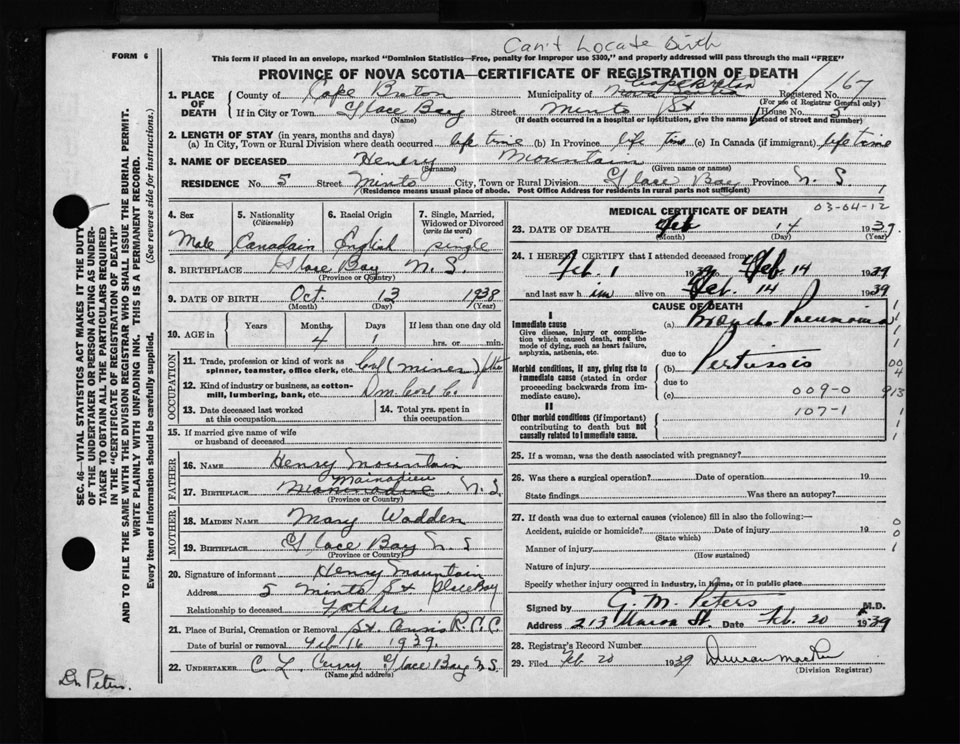 Can't Locate Birth
FORM 6
This form if placed in an envelope, marked "Dominion Statistics—Free, penalty for improper use $300," and properly addressed will pass through the mail "FREE"
PROVINCE OF NOVA SCOTIA—CERTIFICATE OF REGISTRATION OF DEATH
SEC. 46—VITAL STATISTICS ACT MAKES IT THE DUTY
OF THE UNDERTAKER OR PERSON ACTING AS UNDER-
TAKER TO OBTAIN ALL THE PARTICULARS REQUIRED
IN THE "CERTIFICATE OF REGISTRATION OF DEATH"
AND TO FILE THE SAME WITH THE DIVISION REGISTRAR WHO SHALL ISSUE THE BURIAL PERMIT.
WRITE PLAINLY WITH UNFADING INK. THIS IS A PERMANENT RECORD.
Every item of information should be carefully supplied. (See reverse side for instructions.)
1. PLACE OF DEATH County of Cape Breton Municipality of Cape Breton Registered No. 167
(For use of Registrar General only)
If in City or Town Glace Bay Street Minto St House No. 5
(Name) (If death occurred in a hospital or institution, give the name instead of street and number)
2. LENGTH OF STAY (in years, months and days)
(a) In City, Town or Rural Division where death occurred life time (b) In Province life time (c) In Canada (if immigrant) life time
3. NAME OF DECEASED Henry Mountain
(Surname) (Given name or names)
RESIDENCE No. 5 Street Minto City, Town or Rural Division Glace Bay Province N.S.
(Residence means usual place of abode. Post Office Address for residents in rural parts not sufficient)
4. Sex Male
5. Nationality (Citizenship) Canadain
6. Racial Origin English
7. Single, Married, Widowed or Divorced (write the word) single
8. BIRTHPLACE Glace Bay N.S.
(Province or Country)
9. DATE OF BIRTH Oct. 13 1938
(Month) (Day) (Year)
10. AGE in Years Months 4 Days 1 If less than one day old hrs. or min.
OCCUPATION
11. Trade, profession or kind of work as spinner, teamster, office clerk, etc. Coal (miner)
12. Kind of industry or business, as cotton-mill, lumbering, bank, etc. Dom. Coal C.
13. Date deceased last worked at this occupation
14. Total yrs. spent in this occupation
15. If married give name of wife or husband of deceased
FATHER
16. NAME Henry Mountain
17. BIRTHPLACE Mainadieu N.S.
(Province or Country)
MOTHER
18. MAIDEN NAME Mary Wadden
19. BIRTHPLACE Glace Bay N S
(Province or Country)
20. Signature of informant Henry Mountain
Address 5 Minto St Glace Bay
Relationship to deceased Father.
21. Place of Burial, Cremation or Removal St. Annis R.C.C.
Date of burial or removal Feb 16 1939.
22. UNDERTAKER C. L. Curry Glace Bay N.S.
(Name and address)
Dr Peters.
03-04-12
MEDICAL CERTIFICATE OF DEATH
23. DATE OF DEATH Feb 14 1939.
(Month) (Day) (Year)
24. I HEREBY CERTIFY that I attended deceased from
Feb. 1 1939 to Feb. 14 1939
and last saw him alive on Feb. 14 1939
CAUSE OF DEATH
I
Immediate cause
Give disease, injury or complication which caused death, not the mode of dying, such as heart failure, asphyxia, asthenia, etc.
(a) Broncho Pneumonia
due to
Morbid conditions, if any, giving rise to immediate cause (stated in order of proceeding backwards from immediate cause).
(b) Pertussis
due to
(c) 009-0 913
107-1
II
Other morbid conditions (if important) contributing to death but not causally related to immediate cause.
25. If a woman, was the death associated with pregnancy?
26. Was there a surgical operation? Date of operation 19
State findings Was there an autopsy?
27. If death was due to external causes (violence) fill in also the following:—
Accident, suicide or homicide? Date of injury 19
(State which)
Manner of injury
(How sustained)
Nature of injury
Specify whether injury occurred in industry, in home, or in public place
Signed by G. M. Peters M.D.
Address 213 St. Date Feb. 20 1939
28. Registrar's Record Number
29. Filed Feb 20 1939 Duncan
(Division Registrar)